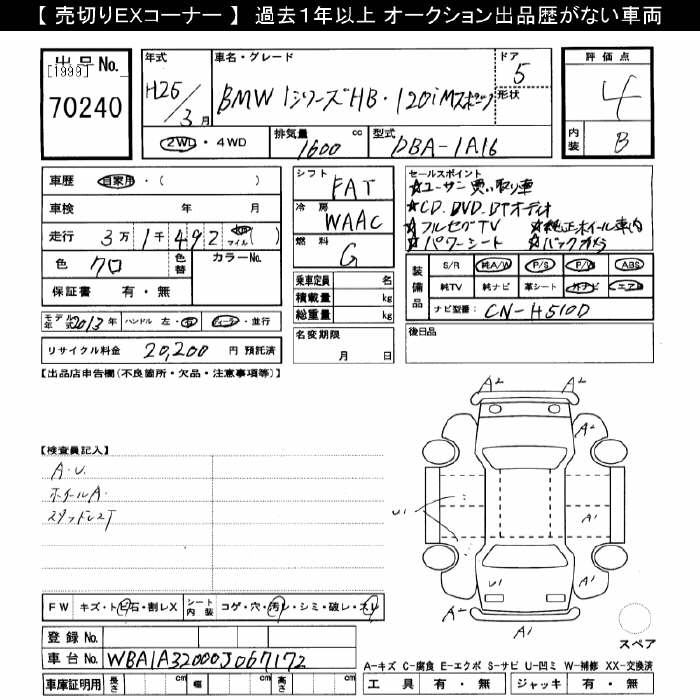 【 売切りEXコーナー 】 過去1年以上 オークション出品歴がない車両
出品No.
[1999]
70240
年式
H25/3月
車名・グレード
BMW 1シリーズHB・120i Mスポーツ
ドア
5
形状
2WD・4WD
排気量
1600 cc
型式
DBA-1A16
評価点
4
内装
B
車歴 自家用・( )
車検 年 月
走行 3万1千492 km マイル ( )
色 クロ
色替
カラーNo.
保証書 有・無
モデル年式 2013年 ハンドル 左・右 ディーラ・並行
リサイクル料金 20,200 円 預託済
シフト
FAT
冷房
WAAC
燃料
G
乗車定員 名
積載量 kg
総重量 kg
名変期限
月 日
セールスポイント
☆ユーザー買い取り車
☆CD.DVD.DTオーディオ
☆フルセグTV ☆純正ホイール車内
☆パワーシート ☆バックカメラ
装備品
S/R 純A/W P/S P/W ABS
純TV 純ナビ 革シート 外ナビ エアB
ナビ型番: CN-H510D
後日品
【出品店申告欄(不良箇所・欠品・注意事項等)】
【検査員記入】
A.U.
ホイールA.
スタッドレスT
A2 A2
A1
U1
A1
U1
A2 A2
A1
スペア
FW キズ・トビ石・割レX シート内装 コゲ・穴・汚レ・シミ・破レ・スレ
登録 No.
車台 No. WBA1A32000J067172
車庫証明用 長さ cm 幅 cm 高さ cm
A-キズ C-腐食 E-エクボ S-サビ U-凹ミ W-補修 XX-交換済
工具 有・無 ジャッキ 有・無